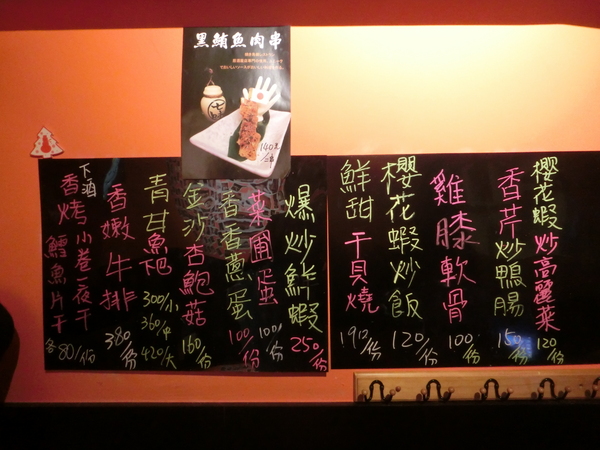 黑鮪魚肉串
140元/串
櫻花蝦炒高麗菜
120/份
香芹炒鴨腸
150/份
雞膝軟骨
100/份
櫻花蝦炒飯
120/份
鮮甜干貝燒
190/份
爆炒鮮蝦
250/份
菜圃蛋
100/份
香香蔥蛋
100/份
金沙杏鮑菇
160/份
青甘魚下巴
300/小
360/中
420/大
香嫩牛排
380/份
下酒
香烤小卷一夜干
鱈魚片干
各80/份